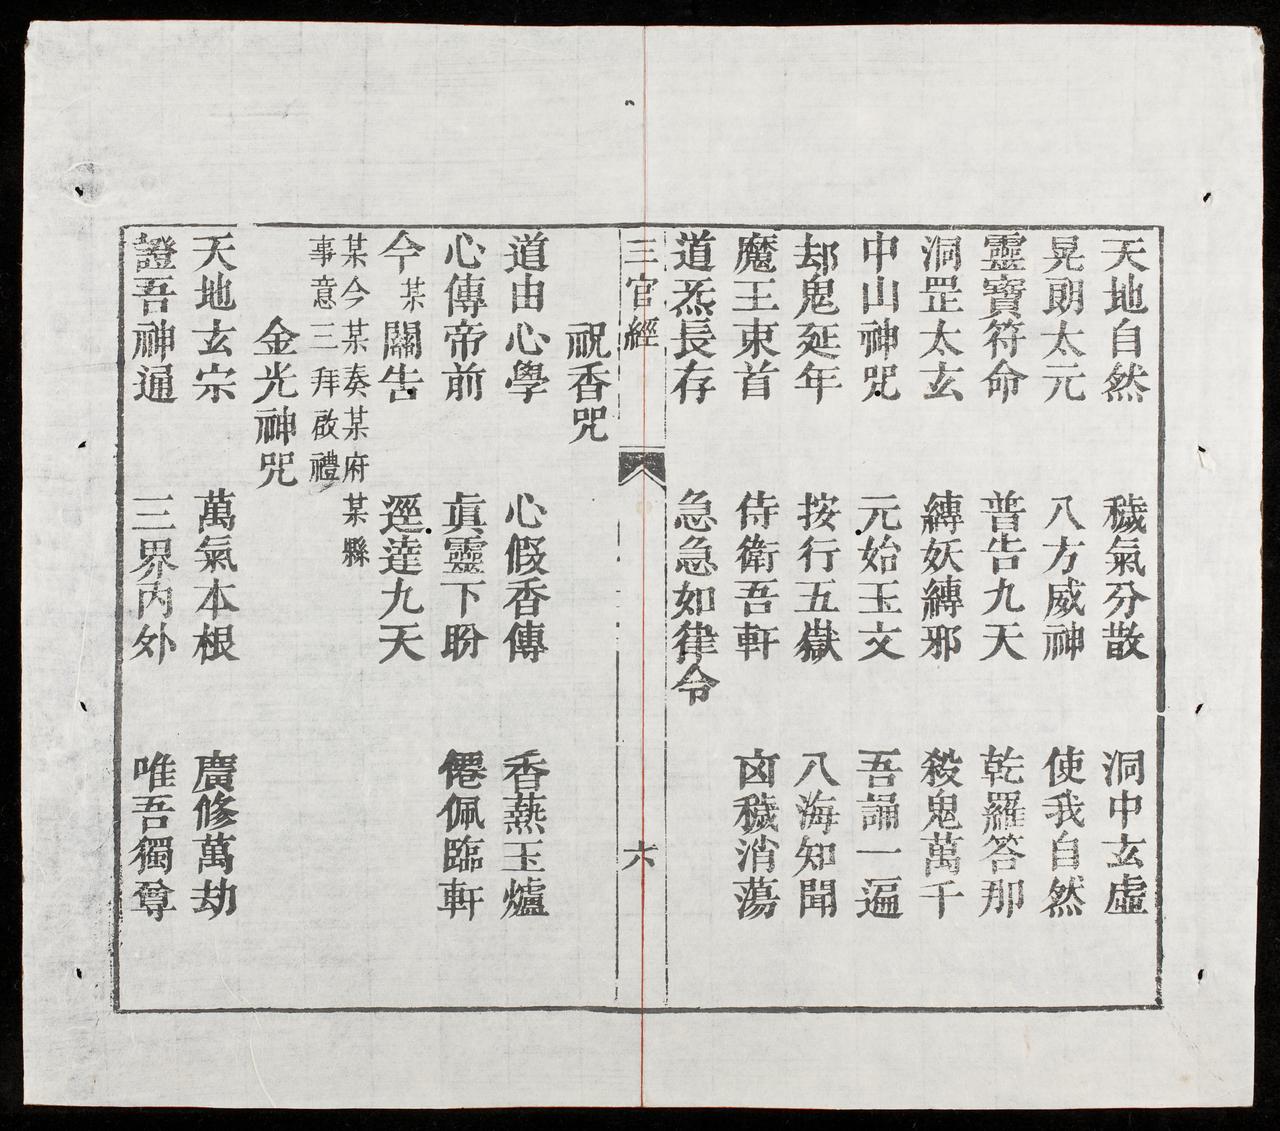 天地自然 穢氣分散 洞中玄虛
晃朗太元 八方威神 使我自然
靈寶符命 普告九天 乾羅答那
洞罡太玄 縛妖縛邪 殺鬼萬千
中山神咒 元始玉文 吾誦一遍
却鬼延年 按行五嶽 八海知聞
魔王束首 侍衛吾軒 凶穢消蕩
道炁長存 急急如律令
三官經 六
祝香咒
道由心學 心假香傳 香爇玉爐
心傳帝前 眞靈下盼 僊佩臨軒
今某關告 逕達九天
某今某奏某府某縣
事意三拜啟禮
金光神咒
天地玄宗 萬氣本根 廣修萬劫
證吾神通 三界內外 唯吾獨尊